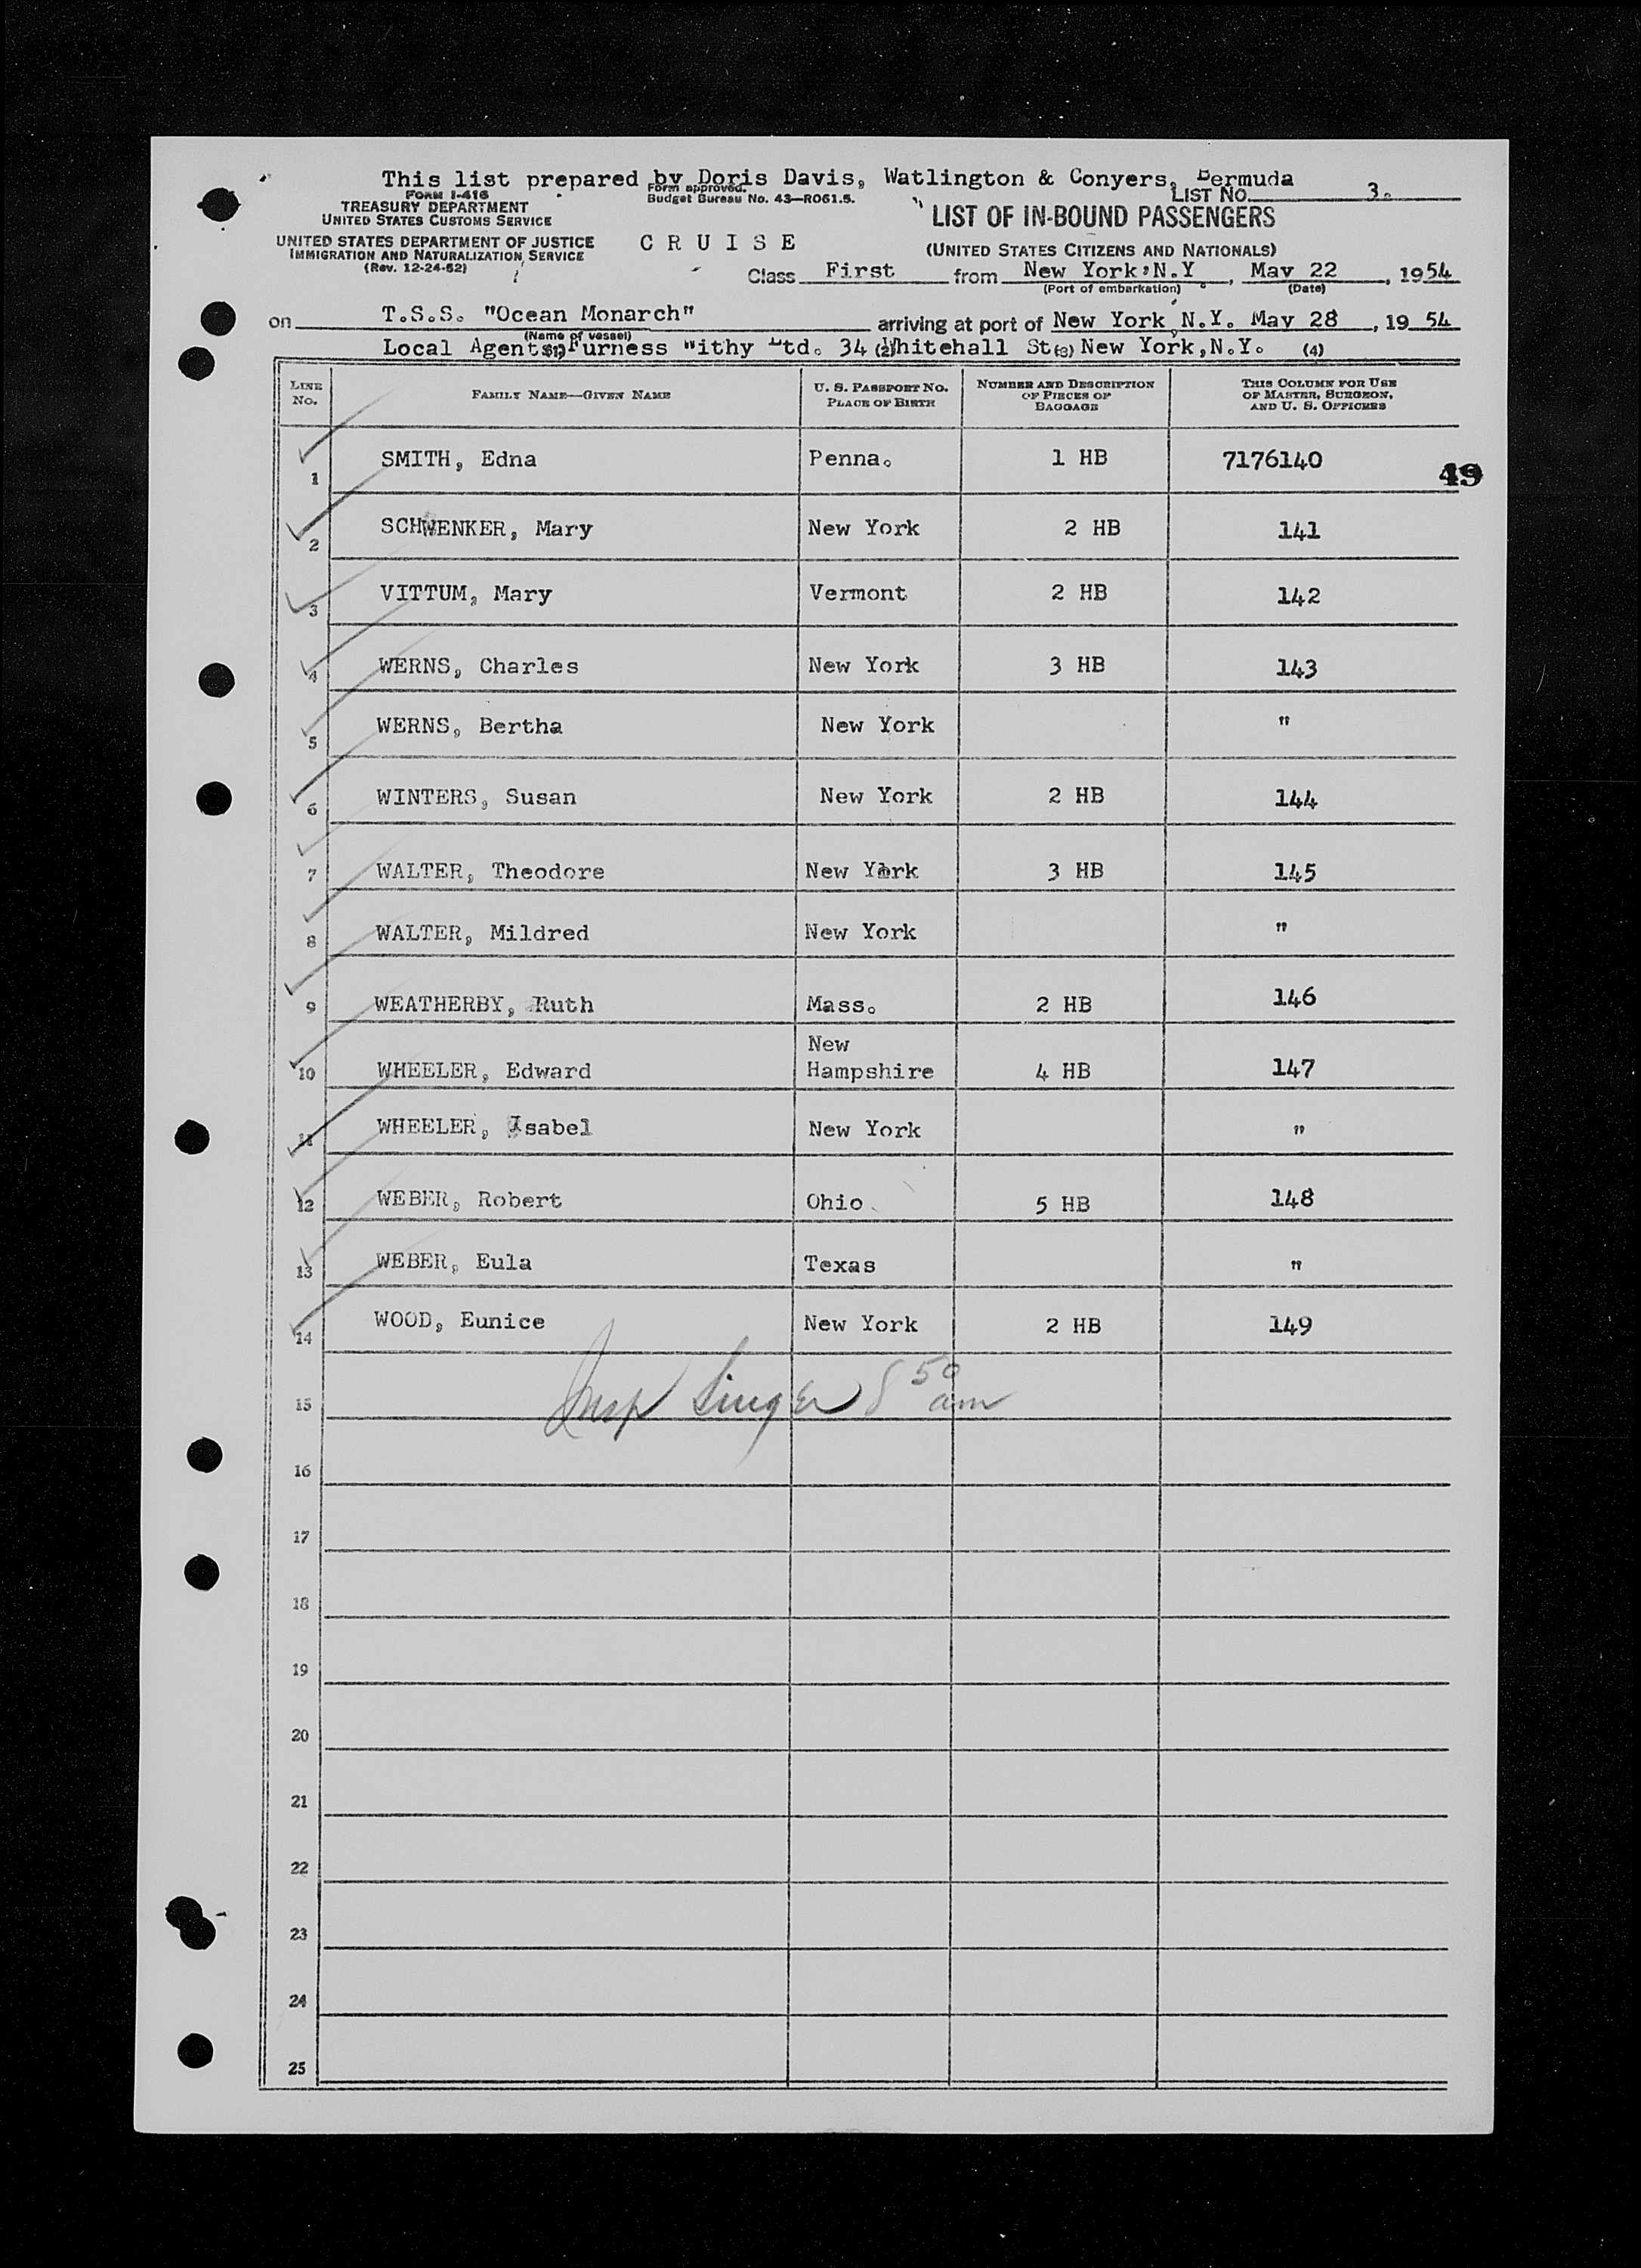 This list prepared by Doris Davis, Watlington & Conyers, Bermuda
FORM I-416
TREASURY DEPARTMENT
UNITED STATES CUSTOMS SERVICE
UNITED STATES DEPARTMENT OF JUSTICE
IMMIGRATION AND NATURALIZATION SERVICE
(Rev. 12-24-52)
Form approved.
Budget Bureau No. 43—R061.5.
CRUISE
LIST NO. 3.
LIST OF IN-BOUND PASSENGERS
(UNITED STATES CITIZENS AND NATIONALS)
Class First from New York, N.Y., May 22, 1954
(Port of embarkation) (Date)
on T.S.S. "Ocean Monarch" arriving at port of New York, N.Y. May 28, 1954
(Name of vessel)
Local Agents: Furness Withy Ltd. 34 Whitehall St. New York, N.Y.
(1) (2) (3) (4)
LINE NO. FAMILY NAME—GIVEN NAME U. S. PASSPORT NO. PLACE OF BIRTH NUMBER AND DESCRIPTION OF PIECES OF BAGGAGE THIS COLUMN FOR USE OF MASTER, SURGEON, AND U. S. OFFICERS
1 SMITH, Edna Penna. 1 HB 7176140
49
2 SCHWENKER, Mary New York 2 HB 141
3 VITTUM, Mary Vermont 2 HB 142
4 WERNS, Charles New York 3 HB 143
5 WERNS, Bertha New York "
6 WINTERS, Susan New York 2 HB 144
7 WALTER, Theodore New York 3 HB 145
8 WALTER, Mildred New York "
9 WEATHERBY, Ruth Mass. 2 HB 146
10 WHEELER, Edward New Hampshire 4 HB 147
11 WHEELER, Isabel New York "
12 WEBER, Robert Ohio 5 HB 148
13 WEBER, Eula Texas "
14 WOOD, Eunice New York 2 HB 149
Insp Singer 8 50 am
15
16
17
18
19
20
21
22
23
24
25